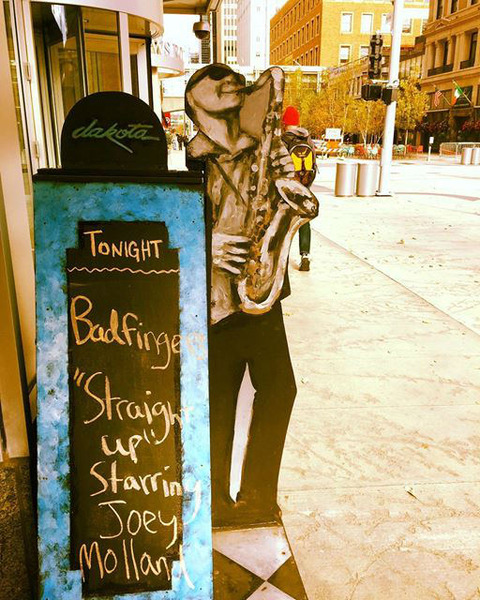 dakota
TONIGHT
Badfinger
"Straight
up"
Starring
Joey
Molland